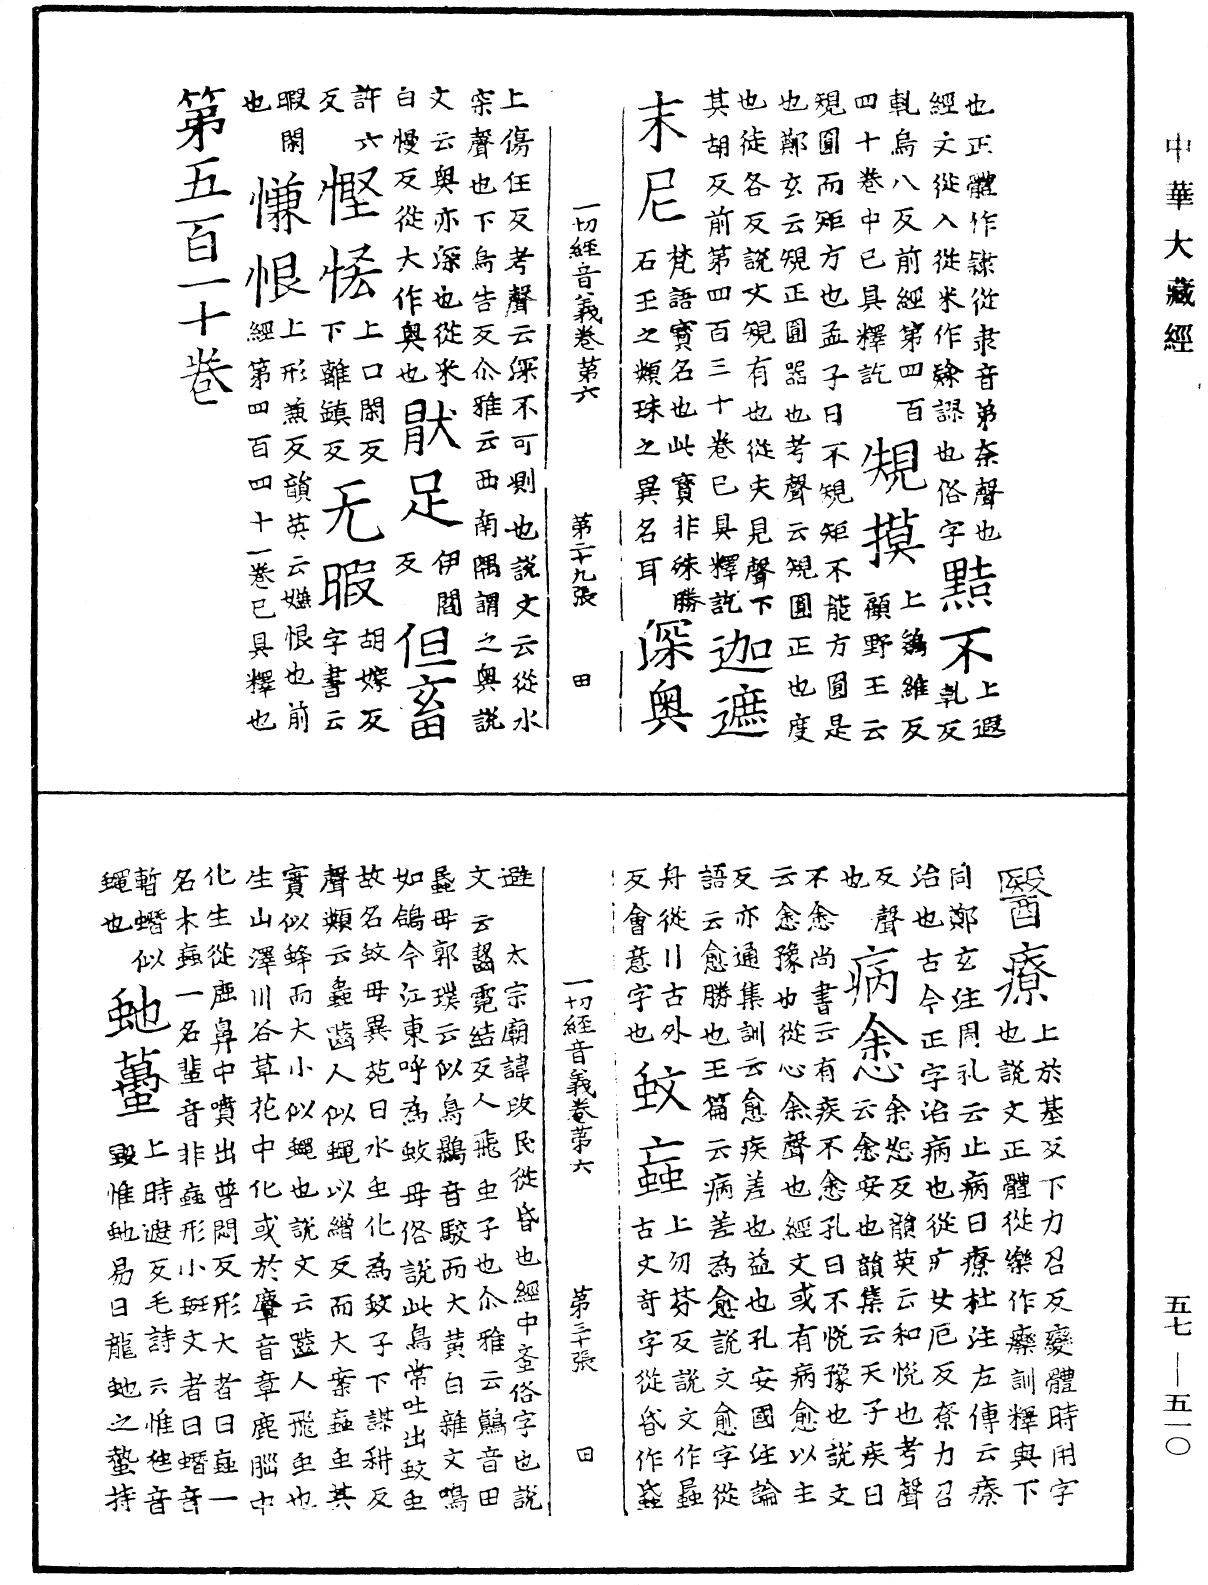 中華大藏經
也正體作隸從隶音弟柰聲也
經文從入從米作䊪謬也俗字
黠不
上遐
軋反
軋烏八反前經第四百
四十巻中已具釋訖
䂓摸
上䳏維反
顧野王云
䂓圓而矩方也孟子曰不䂓矩不能方圓是
也鄭玄云䂓正圓器也考聲云䂓圓正也度
也徒各反說文䂓有也從夫見聲下
其胡反前第四百三十巻已具釋訖
迦遮
末尼
梵語寶名也此寶非殊勝
石王之類珠之異名耳
深奥
一切經音義卷第六 第二十九張 田
上傷任反考聲云深不可測也說文云從水
罙聲也下烏告反尒雅云西南隅謂之奥說
文云奥亦深也從釆
白慢反從大作奥也
猒足
伊閻
反
但畜
許六
反
慳悋
上口閑反
下雞鎮反
无暇
胡嫁反
字書云
暇閑
也
慊恨
上形兼反韻英云嫌恨也前
經第四百四十一巻已具釋也
第五百一十巻
醫療
上於基反下力召反變體時用字
也說文正體從樂作藥訓釋與下
同鄭玄注周礼云止病曰療杜注左傳云療
治也古今正字治病也從疒女厄反尞力召
反聲
也
病悆
余恕反韻英云和悅也考聲
云悆安也韻集云天子疾曰
不悆尚書云有疾不悆孔曰不悅豫也說文
云悆豫也從心余聲也經文或有病愈以主
反亦通集訓云愈疾差也益也孔安國注論
語云愈勝也玉篇云病差為愈說文愈字從
舟從巜古外
反會意字也
蚊䖟
上勿芬反說文作䘇
古文奇字從昏作䘇
一切經音義卷第六 第三十張 田
避太宗廟諱改民從昏也經中蚉俗字也說
文云齧霓結反人飛虫子也尒雅云鷏音田
蟁母郭璞云似烏鷃音駮而大黄白雜文鳴
如鴿今江東呼為蚊母俗說此鳥常吐出蚊虫
故名蚊母異苑曰水虫化為蚊子下謀耕反
聲類云蝱齒人似蠅以繒反而大案䖟虫其
實似蜂而大小似蠅也說文云䖟人飛虫也
生山澤川谷草花中化或於麞音章鹿腦中
化生從鹿鼻中噴出普悶反形大者曰䖟一
名木䖟一名蜚音非䖟形小斑文者曰蠽音
暫蠽似
蠅也
虵蠆
上時遮反毛詩云惟虺音
毀惟虵易曰龍虵之蟄持
五七—五一〇